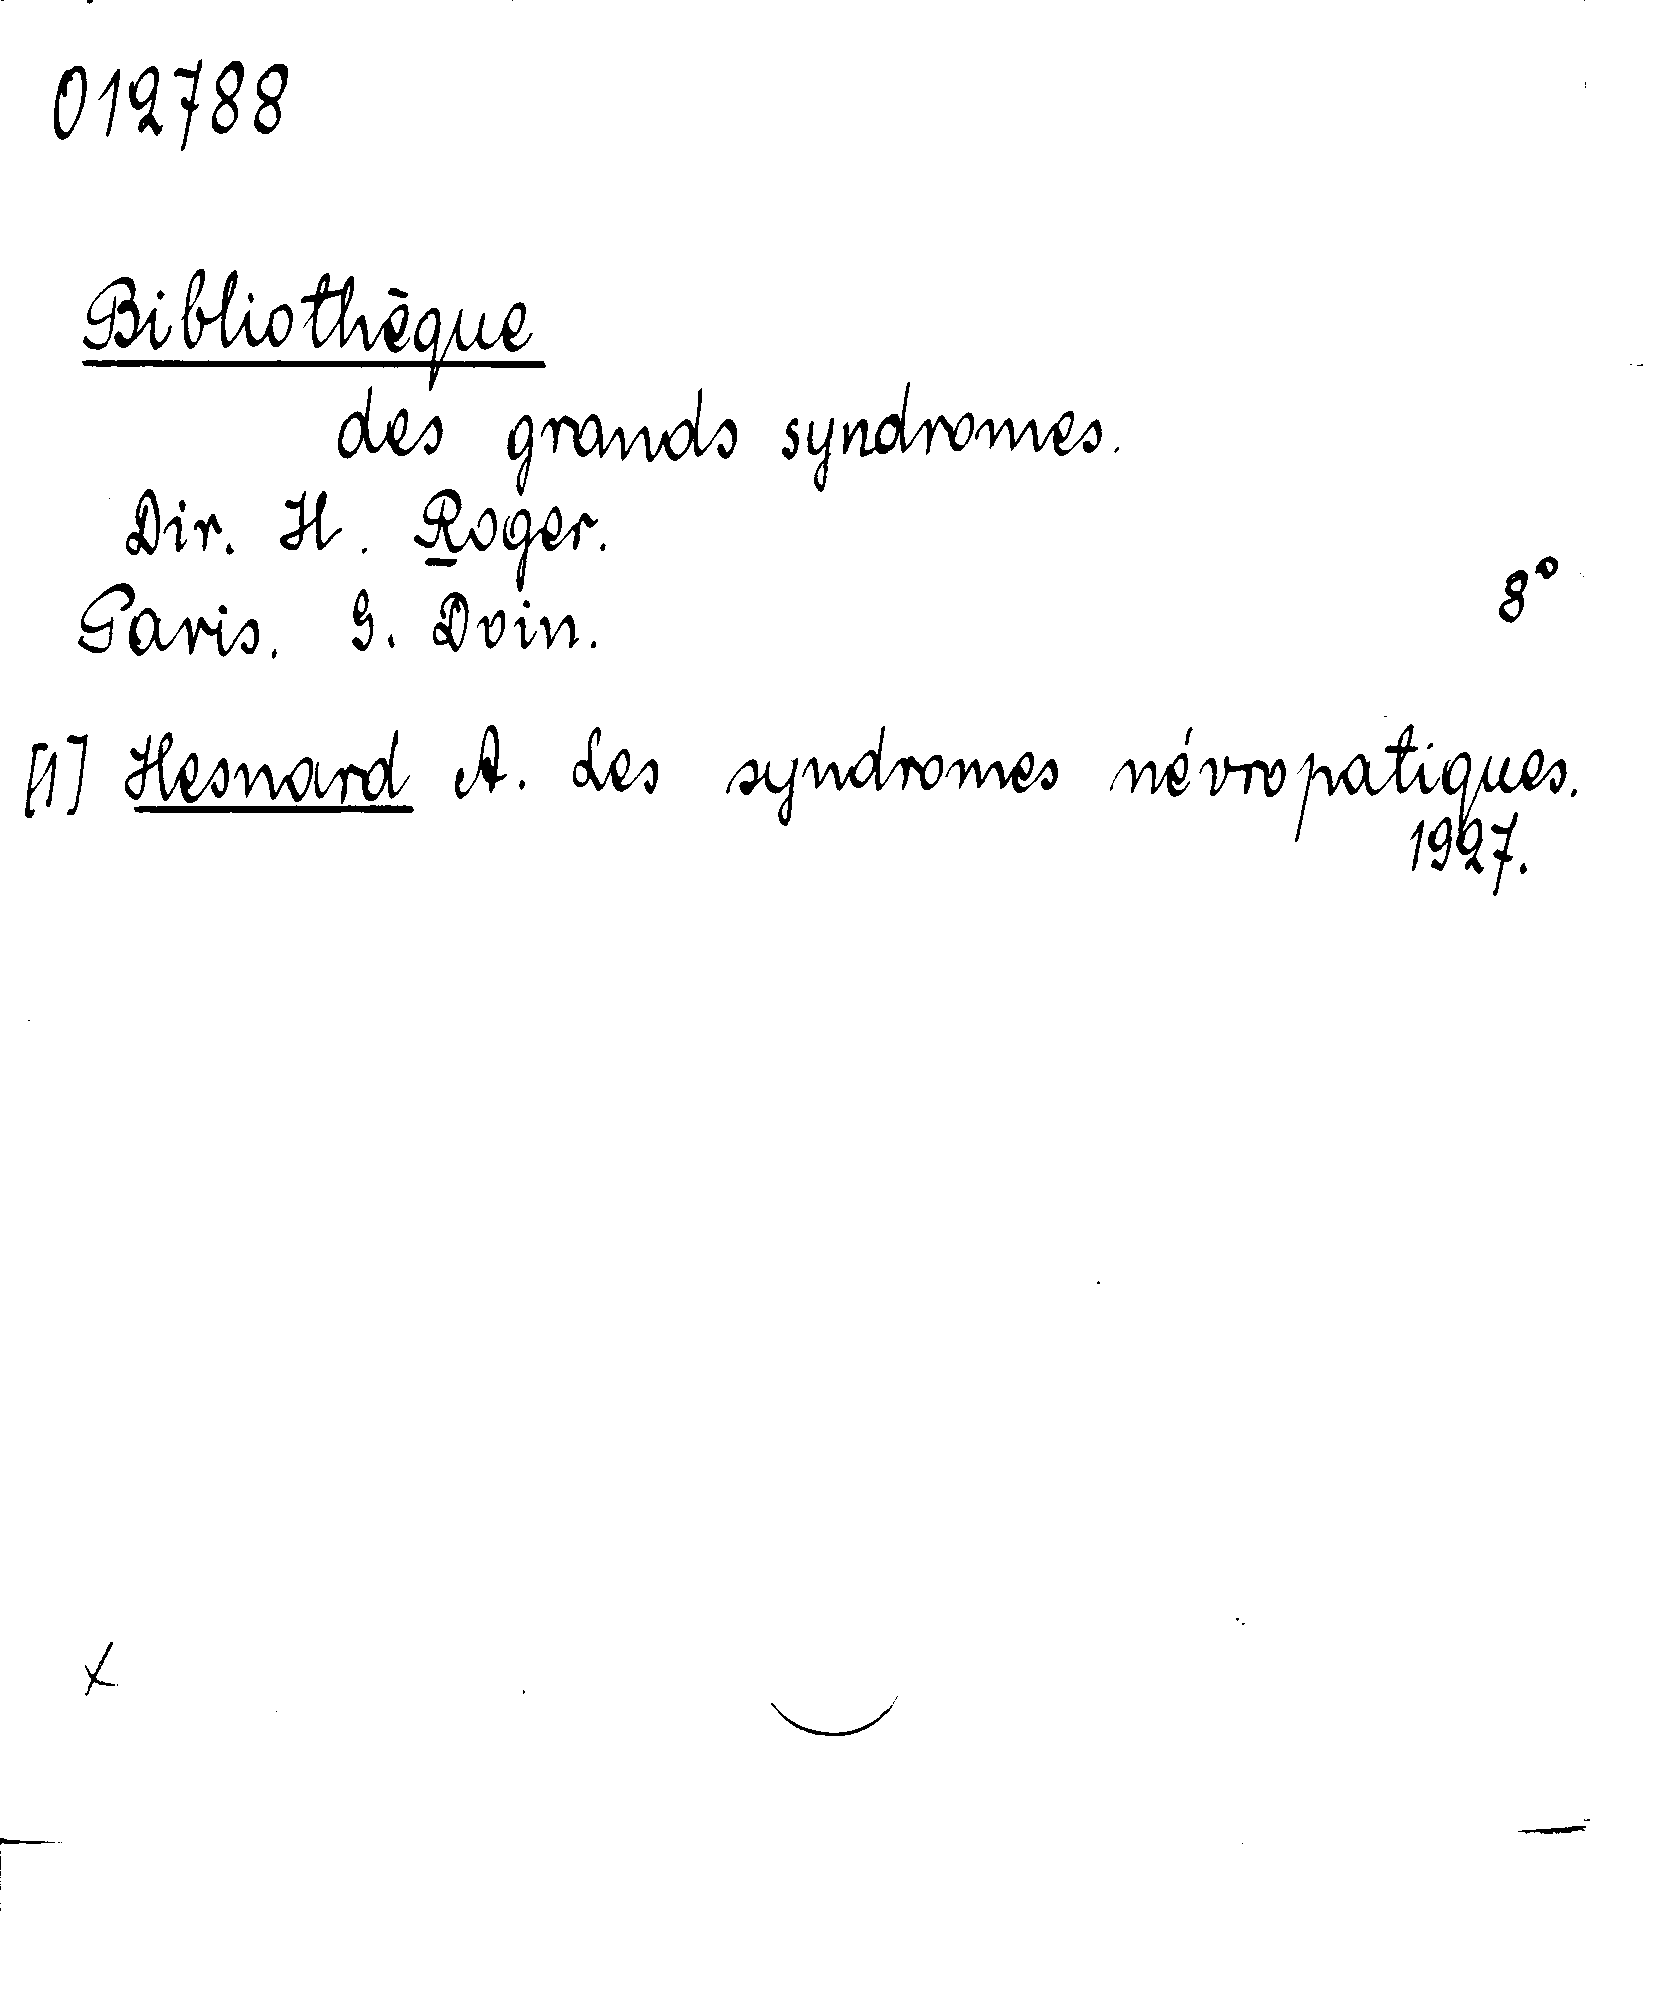 012788
Bibliothèque
des grands syndromes.
Dir. H. Roger.
Paris. G. Doin.
8°
[1] Hesnard A. Les syndromes névropatiques.
1927.
x